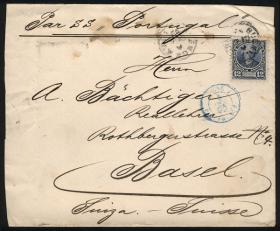 Par SS "Portugal"
Herrn
A. Bächtiger
12 12
Rothbergerstrasse
Basel
Suiza - Suisse